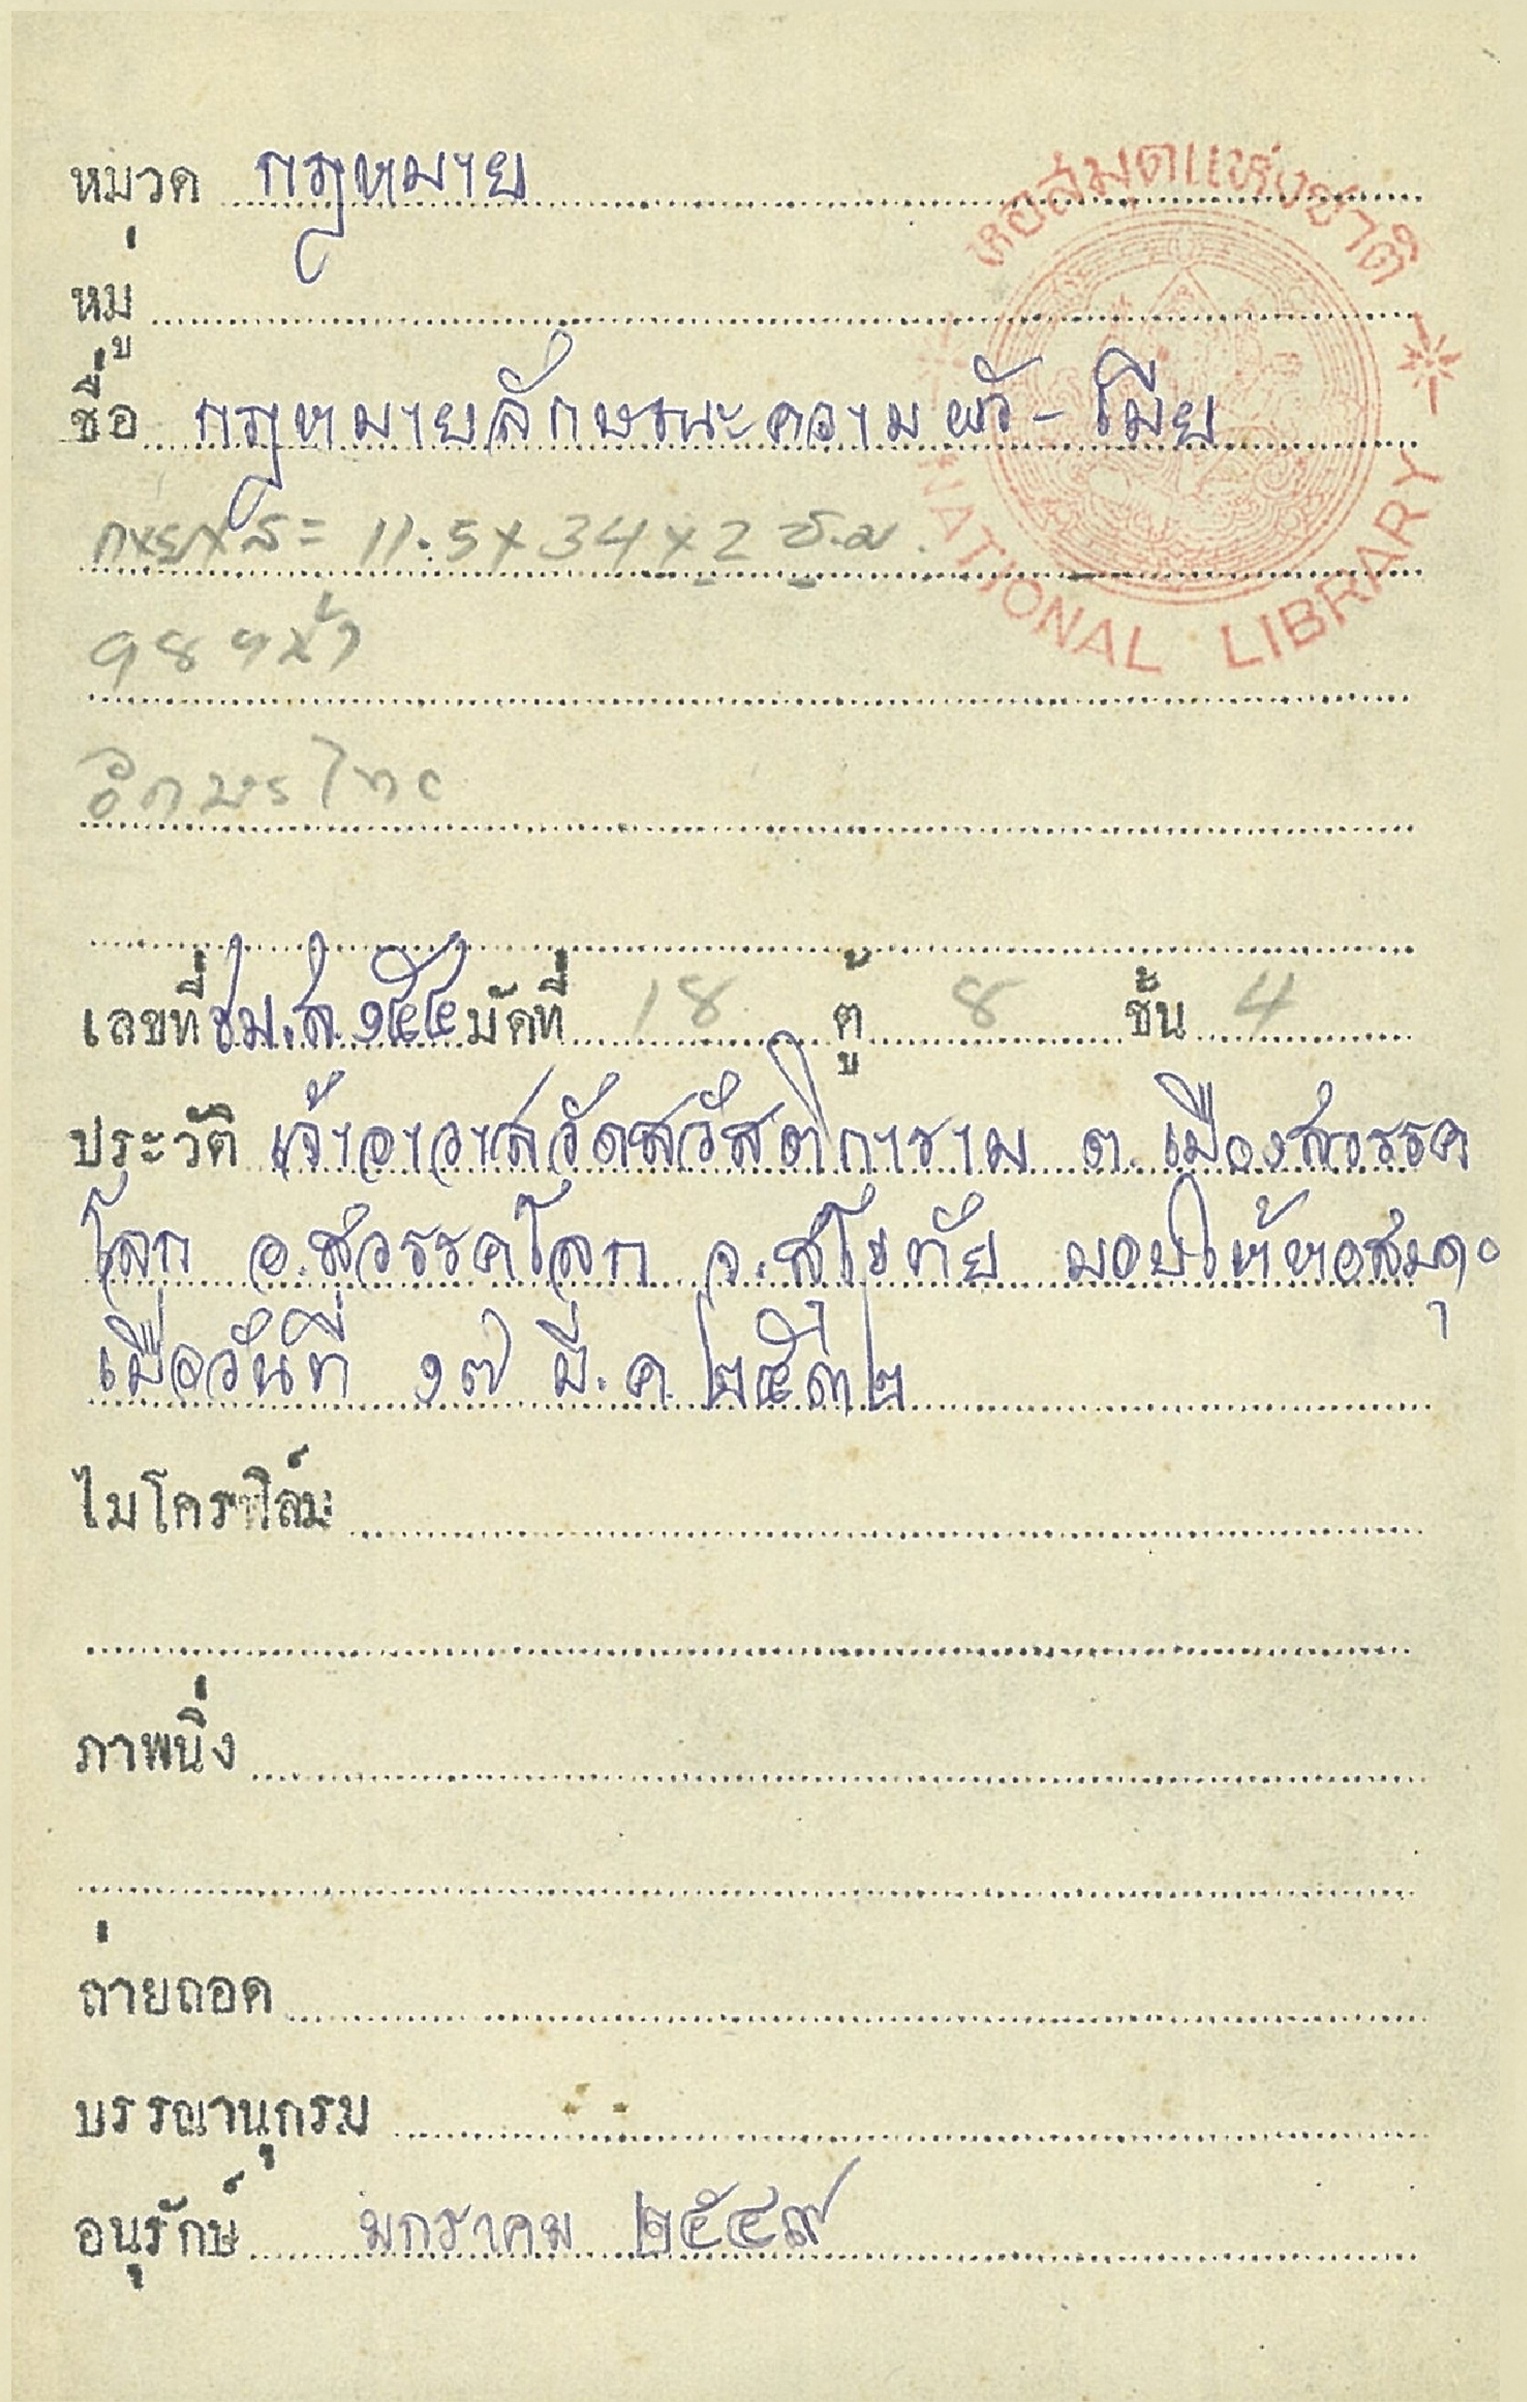 หมวด กฎหมาย
หอสมุดแห่งชาติ
NATIONAL LIBRARY
หมู่
ชื่อ กฎหมายลักษณะความผัว - เมีย
กxยxส = 11.5 x 34 x 2 ซ.ม.
98 หน้า
อักษรไทย
เลขที่ ชม.ส. ๑๕๔ มัดที่ 18 ตู้ 8 ชั้น 4
ประวัติ เจ้าอาวาสวัดสวัสติการาม ต. เมืองสวรรค
โลก อ.สวรรคโลก จ.สุโขทัย มอบให้หอสมุดฯ
เมื่อวันที่ ๑๗ มี.ค. ๒๕๓๒
ไมโครฟิล์ม
ภาพนิ่ง
ถ่ายถอด
บรรณานุกรม
อนุรักษ์ มกราคม ๒๕๔๙